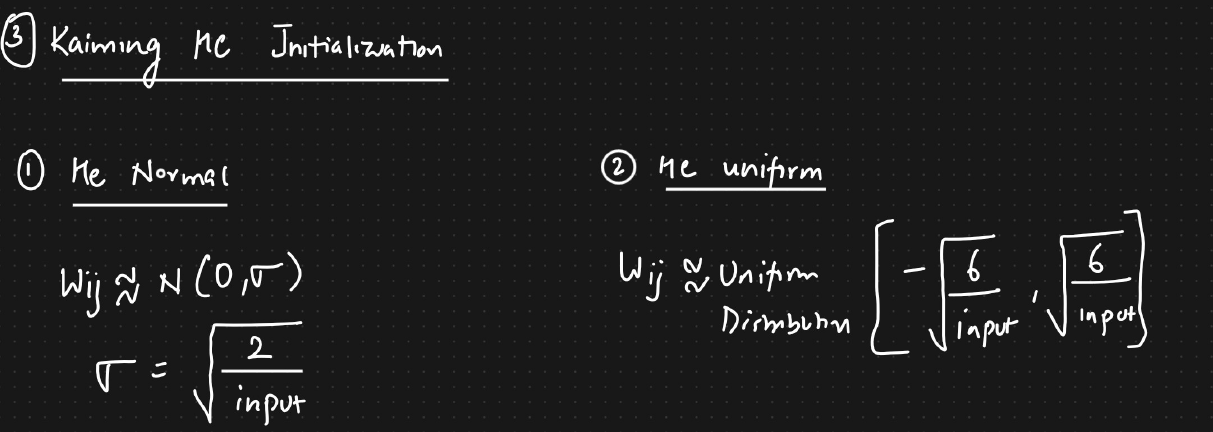 ③ Kaiming He Initialization
① He Normal
Wij ≈ N (0, σ)
σ = √(2 / input)
② He uniform
Wij ≈ Uniform
Distribution [ -√(6 / input) , √(6 / input) ]